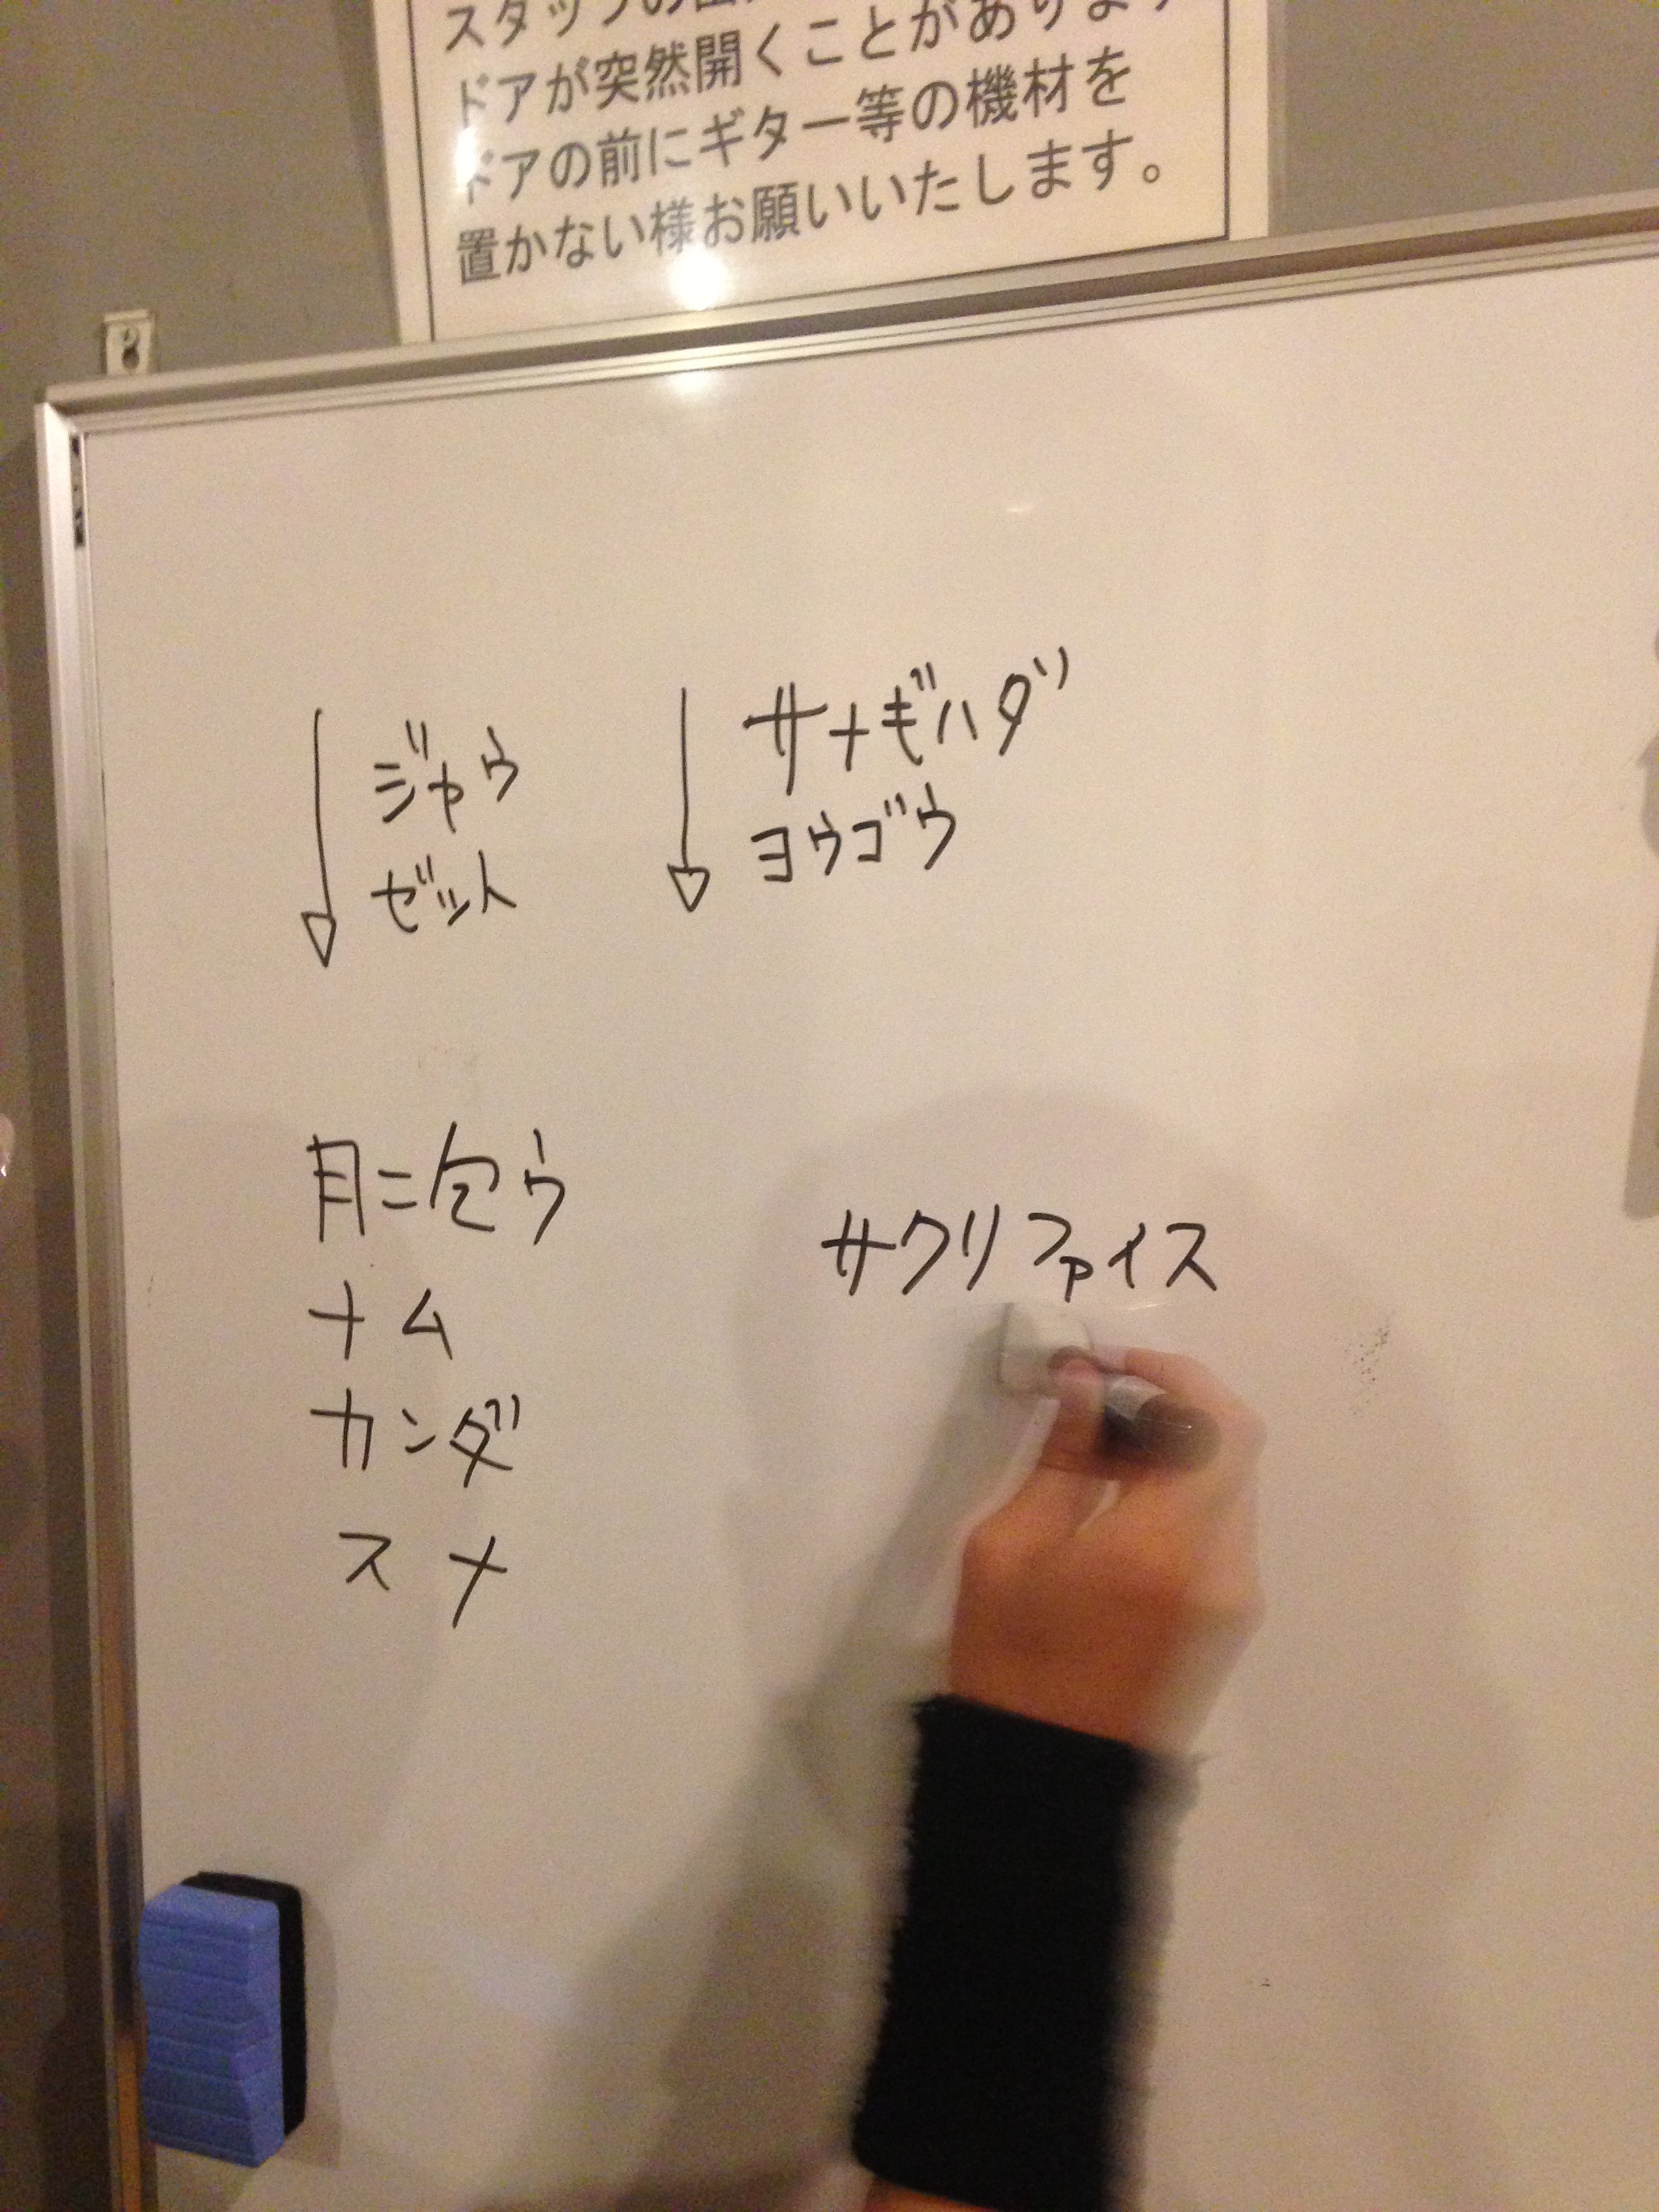 ドアが突然開くことがあります
ドアの前にギター等の機材を
置かない様お願いいたします。
ジャウ
ゼット
サナギハダ
ヨウゴウ
月ニ包ウ
ナム
カンダ
スメ
サクリファイス